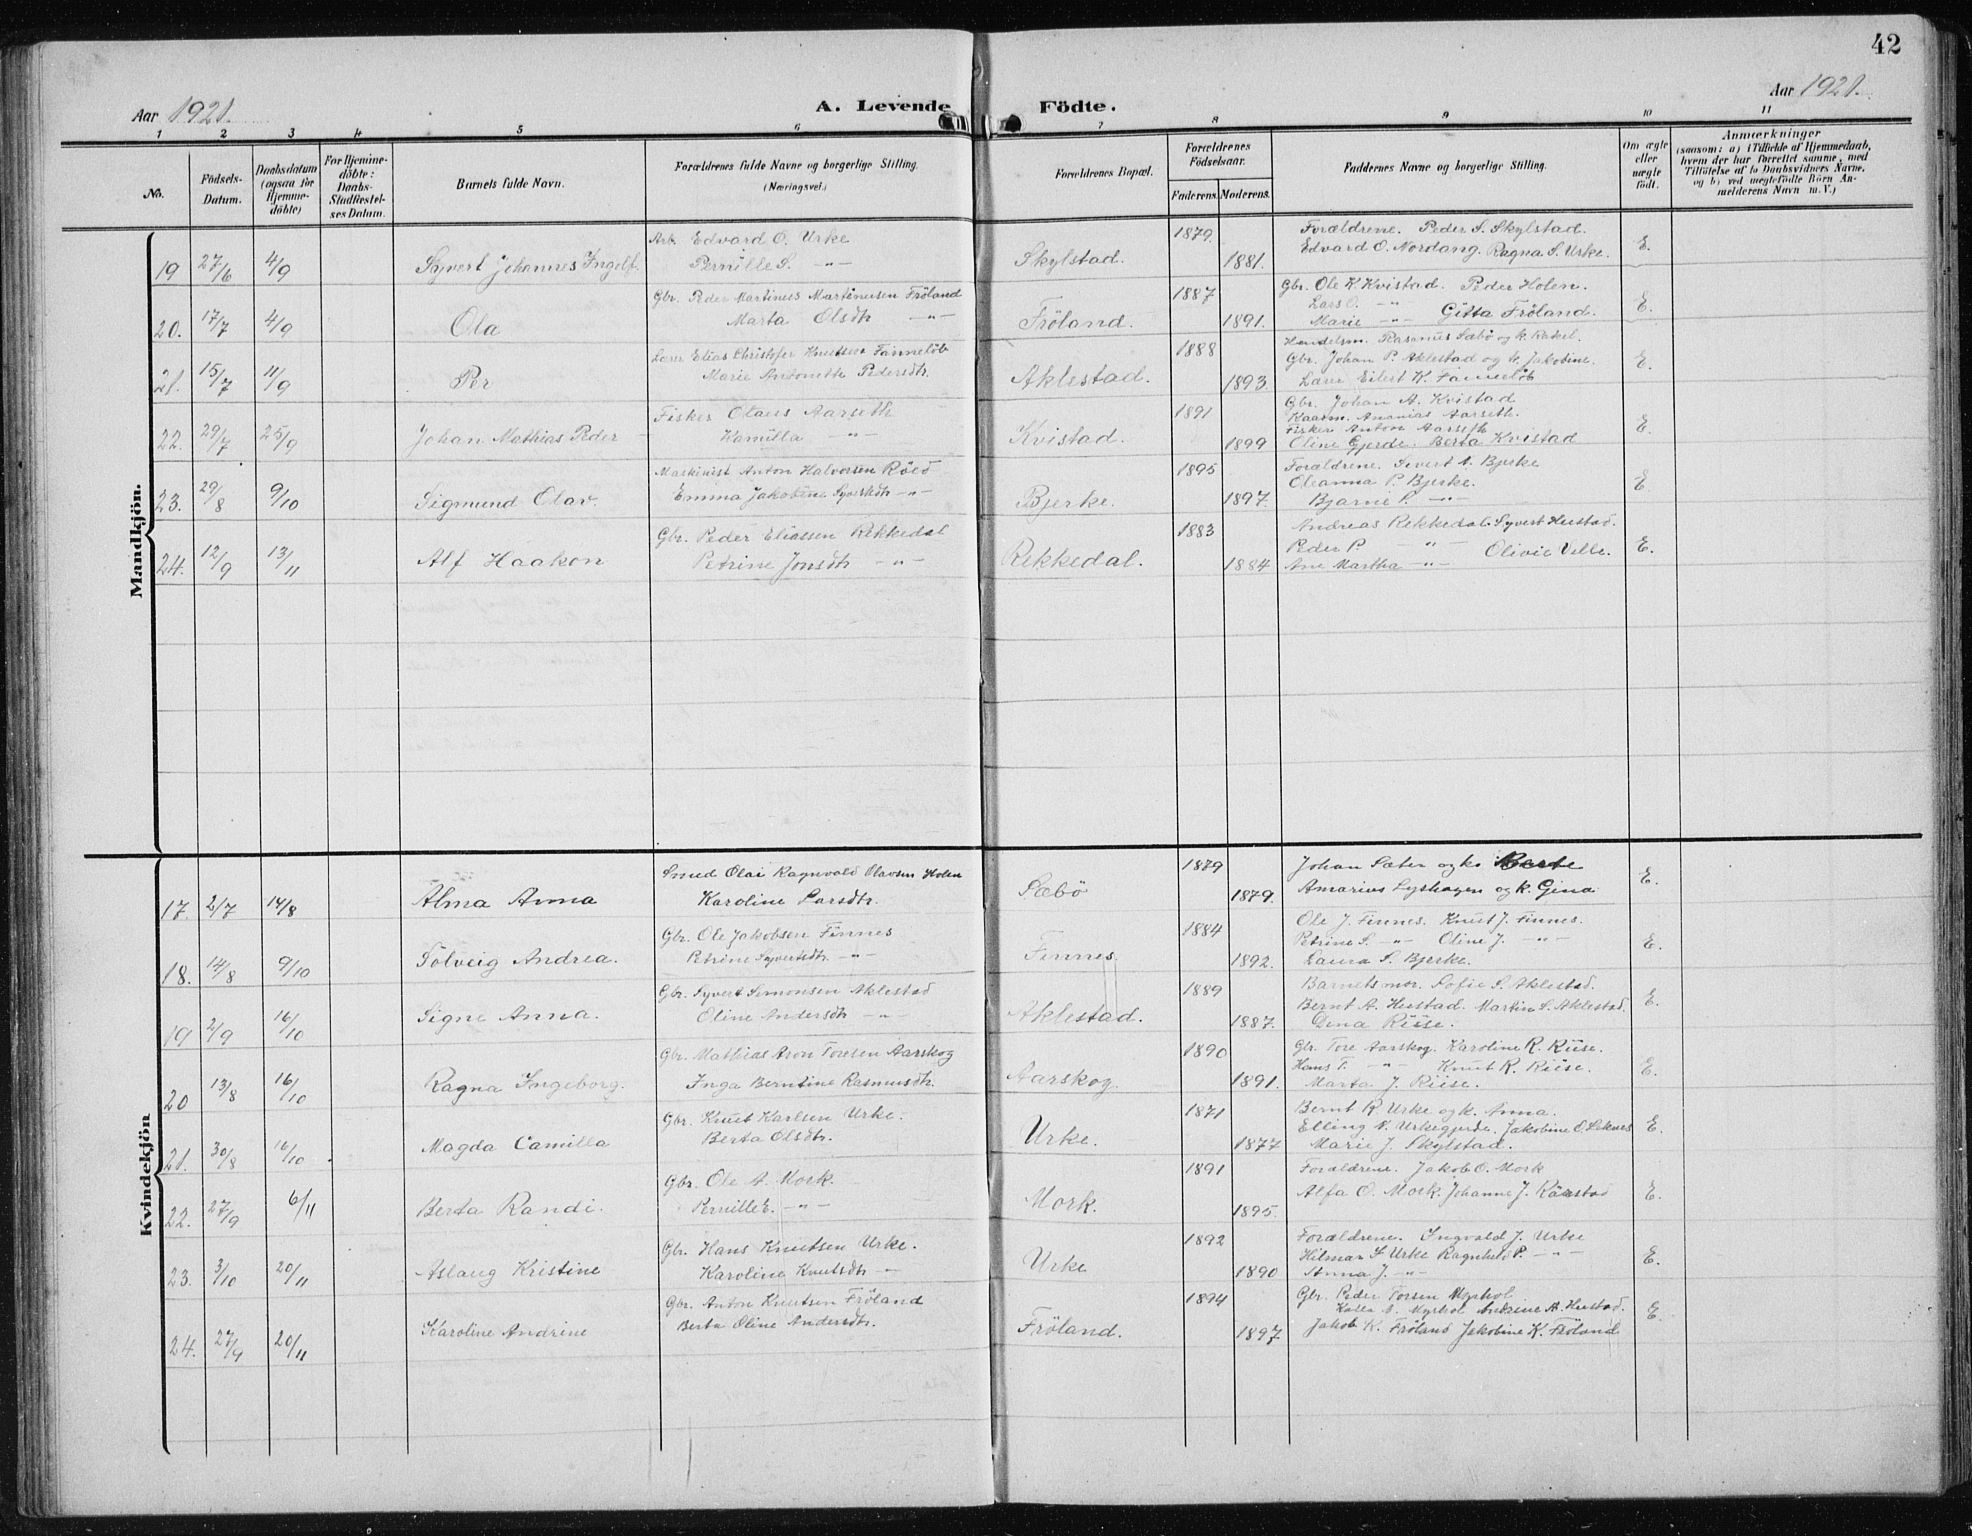 42
Aar 1921.
A. Levende Födte.
Aar 1921.
1 2 3 4 5 6 7 8 9 10 11
No.
Födsels-Datum.
Daabsdatum (ogsaa for Hjemme-döbte)
For Hjemme-döbte: Daabs-Stadfestel-ses Datum.
Barnets fulde Navn.
Forældrenes fulde Navne og borgerlige Stilling. (Næringsvei.)
Forældrenes Bopæl.
Forældrenes Födselsaar.
Faderens. Moderens.
Faddernes Navne og borgerlige Stilling.
Om ægte eller uægte födt.
Anmærkninger (saasom: a) i Tilfælde af Hjemmedaab, hvem der har forrettet samme, med Tilföielse af to Daabsvidners Navne, og b) ved uægtefödte Börn An-melderens Navn m. V.)
Mandkjön.
19 27/6 4/9 Syvert Johannes Ingolf. Arb. Edvard O. Urke Skylstad. 1879. Forældrene. Peder S. Skylstad. E.
Pernille S. -"- 1881. Edvard O. Nordang. Ragna S. Urke.
20. 17/7 4/9 Ola Gbr. Peder Martinus Martinusen Fröland Fröland. 1887 Gbr. Ole K. Kvistad. Peder Holen. E.
Marta Olsdtr -"- 1891. Lars O. -"-
Marie -"- Gitta Fröland.
21. 15/7 11/9 Per Lærer Elias Christofer Knutsen Fanneløb Aklestad. 1888 Handelsm. Rasmus Sæbö og k. Rakel. E.
Marie Antonette Pedersdtr. 1893. Gbr. Johan P. Aklestad og k. Jakobine.
Lærer Eilert K. Fanneløb
22. 29/7 25/9 Johan Mathias Peder Fisker Olaus Aarseth Kvistad. 1891 Gbr. Johan A. Kvistad E.
Kamilla -"- 1899 Kaarm. Ananias Aarseth.
Fisker Anton Aarseth
Oline Gjerde. Berta Kvistad
23. 29/8 9/10 Sigmund Olav. Maskinist Anton Halvorsen Röed Bjerke. 1895 Forældrene. Severt A. Bjerke E
Emma Jakobine Syversdtr -"- 1897. Oleanna P. Bjerke.
Bjarne P. -"-
24. 12/9 13/11 Alf Haakon Gbr. Peder Eliassen Rekkedal Rekkedal. 1883 Andreas Rekkedal. Syvert Hustad. E.
Petrine Jonsdtr -"- 1884 Peder P. -"- Olivie Velle.
Ane Martha -"-
Kvindekjön
17. 2/7 14/8 Alma Anna Smed Olai Ragnvald Olavsen Holen Sæbö 1879 Johan Sæter og k. E.
Karoline Larsdtr. 1879. Amarius Lyshagen og k. Gina
18. 14/8 9/10 Solveig Andrea. Gbr. Ole Jakobsen Finnes Finnes 1884 Ole J. Finnes. Knut J. Finnes. E.
Petrine Syvertsdtr. -"- 1892. Petrine S. -"- Oline J. -"-
Laura S. Bjerke.
19 2/9 16/10 Signe Anna. Gbr. Syvert Simonsen Aklestad Aklestad. 1889 Barnets mor. Sofie S. Aklestad. E.
Oline Andersdtr -"- 1887. Bernt A. Hustad. Martin S. Aklestad.
Dina Riise.
20 13/8 16/10 Ragna Ingeborg. Gbr. Mathias Aron Toresen Aarskog Aarskog 1890 Gbr. Tore Aarskog. Karoline R. Riise. E.
Inga Berntine Rasmusdtr. 1891. Hans T. -"- Knut R. Riise.
Marta J. Riise.
21. 30/8 16/10 Magda Camilla Gbr. Knut Karlsen Urke. Urke. 1871 Bernt R. Urke og k. Anna. E.
Berta Olsdtr. 1877 Elling N. Urkegjerde. Jakobine O. Leknes
Marie J. Skylstad.
22. 27/9 6/11 Berta Randi. Gbr. Ole A. Mork. Mork. 1891 Forældrene. Jakob O. Mork E.
Pernille E. -"- 1895. Alfa O. Mork. Johanne J.
23. 3/10 20/11 Aslaug Kristine Gbr. Hans Knutsen Urke. Urke 1892 Forældrene. Ingvald J. Urke E.
Karoline Knutsdtr -"- 1890 Hilmar S. Urke Ragnhild P. -"-
Anna J. -"-
24. 27/9 20/11 Karoline Andrine Gbr. Anton Knutsen Fröland Fröland. 1894 Gbr. Peder Torsen Myrhol E.
Berta Oline Andersdtr. 1897 A. Myrhol Andrine A. Hustad.
Jakob K. Fröland Jakobine K. Fröland